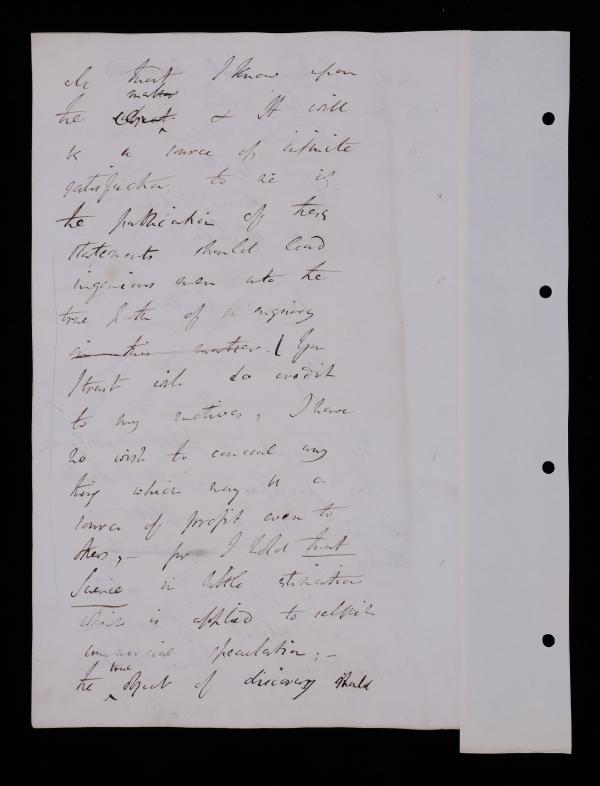 all that I know upon
matter
the object & It will
be a source of infinite
satisfaction to me if
the publication of these
statements should lead
ingenious men into the
true path of enquiry
in this matter. You
I trust will do credit
to my motives, I have
no wish to conceal any
thing which may be a
source of profit even to
others, – for I hold that
Science in little estimation
which is applied to selfish
commercial speculation; –
true
the object of discovery should